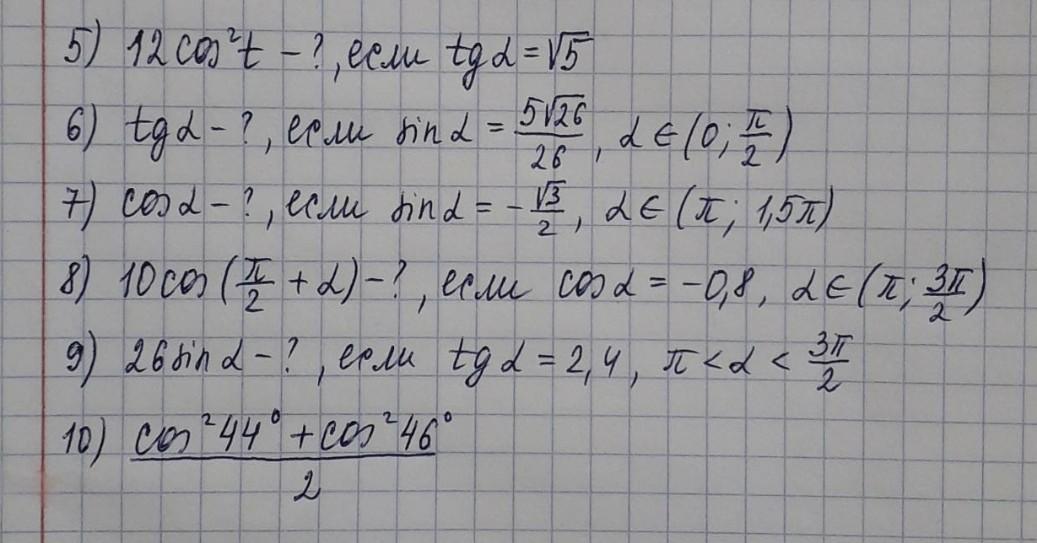 5) 12cos²t - ?, если tgα = √5
6) tgα - ?, если sinα = 5√26/26, α ∈ (0; π/2)
7) cosα - ?, если sinα = -√3/2, α ∈ (π; 1,5π)
8) 10cos(π/2 + α) - ?, если cosα = -0,8, α ∈ (π; 3π/2)
9) 26sinα - ?, если tgα = 2,4, π < α < 3π/2
10) (cos²44° + cos²46°)/2